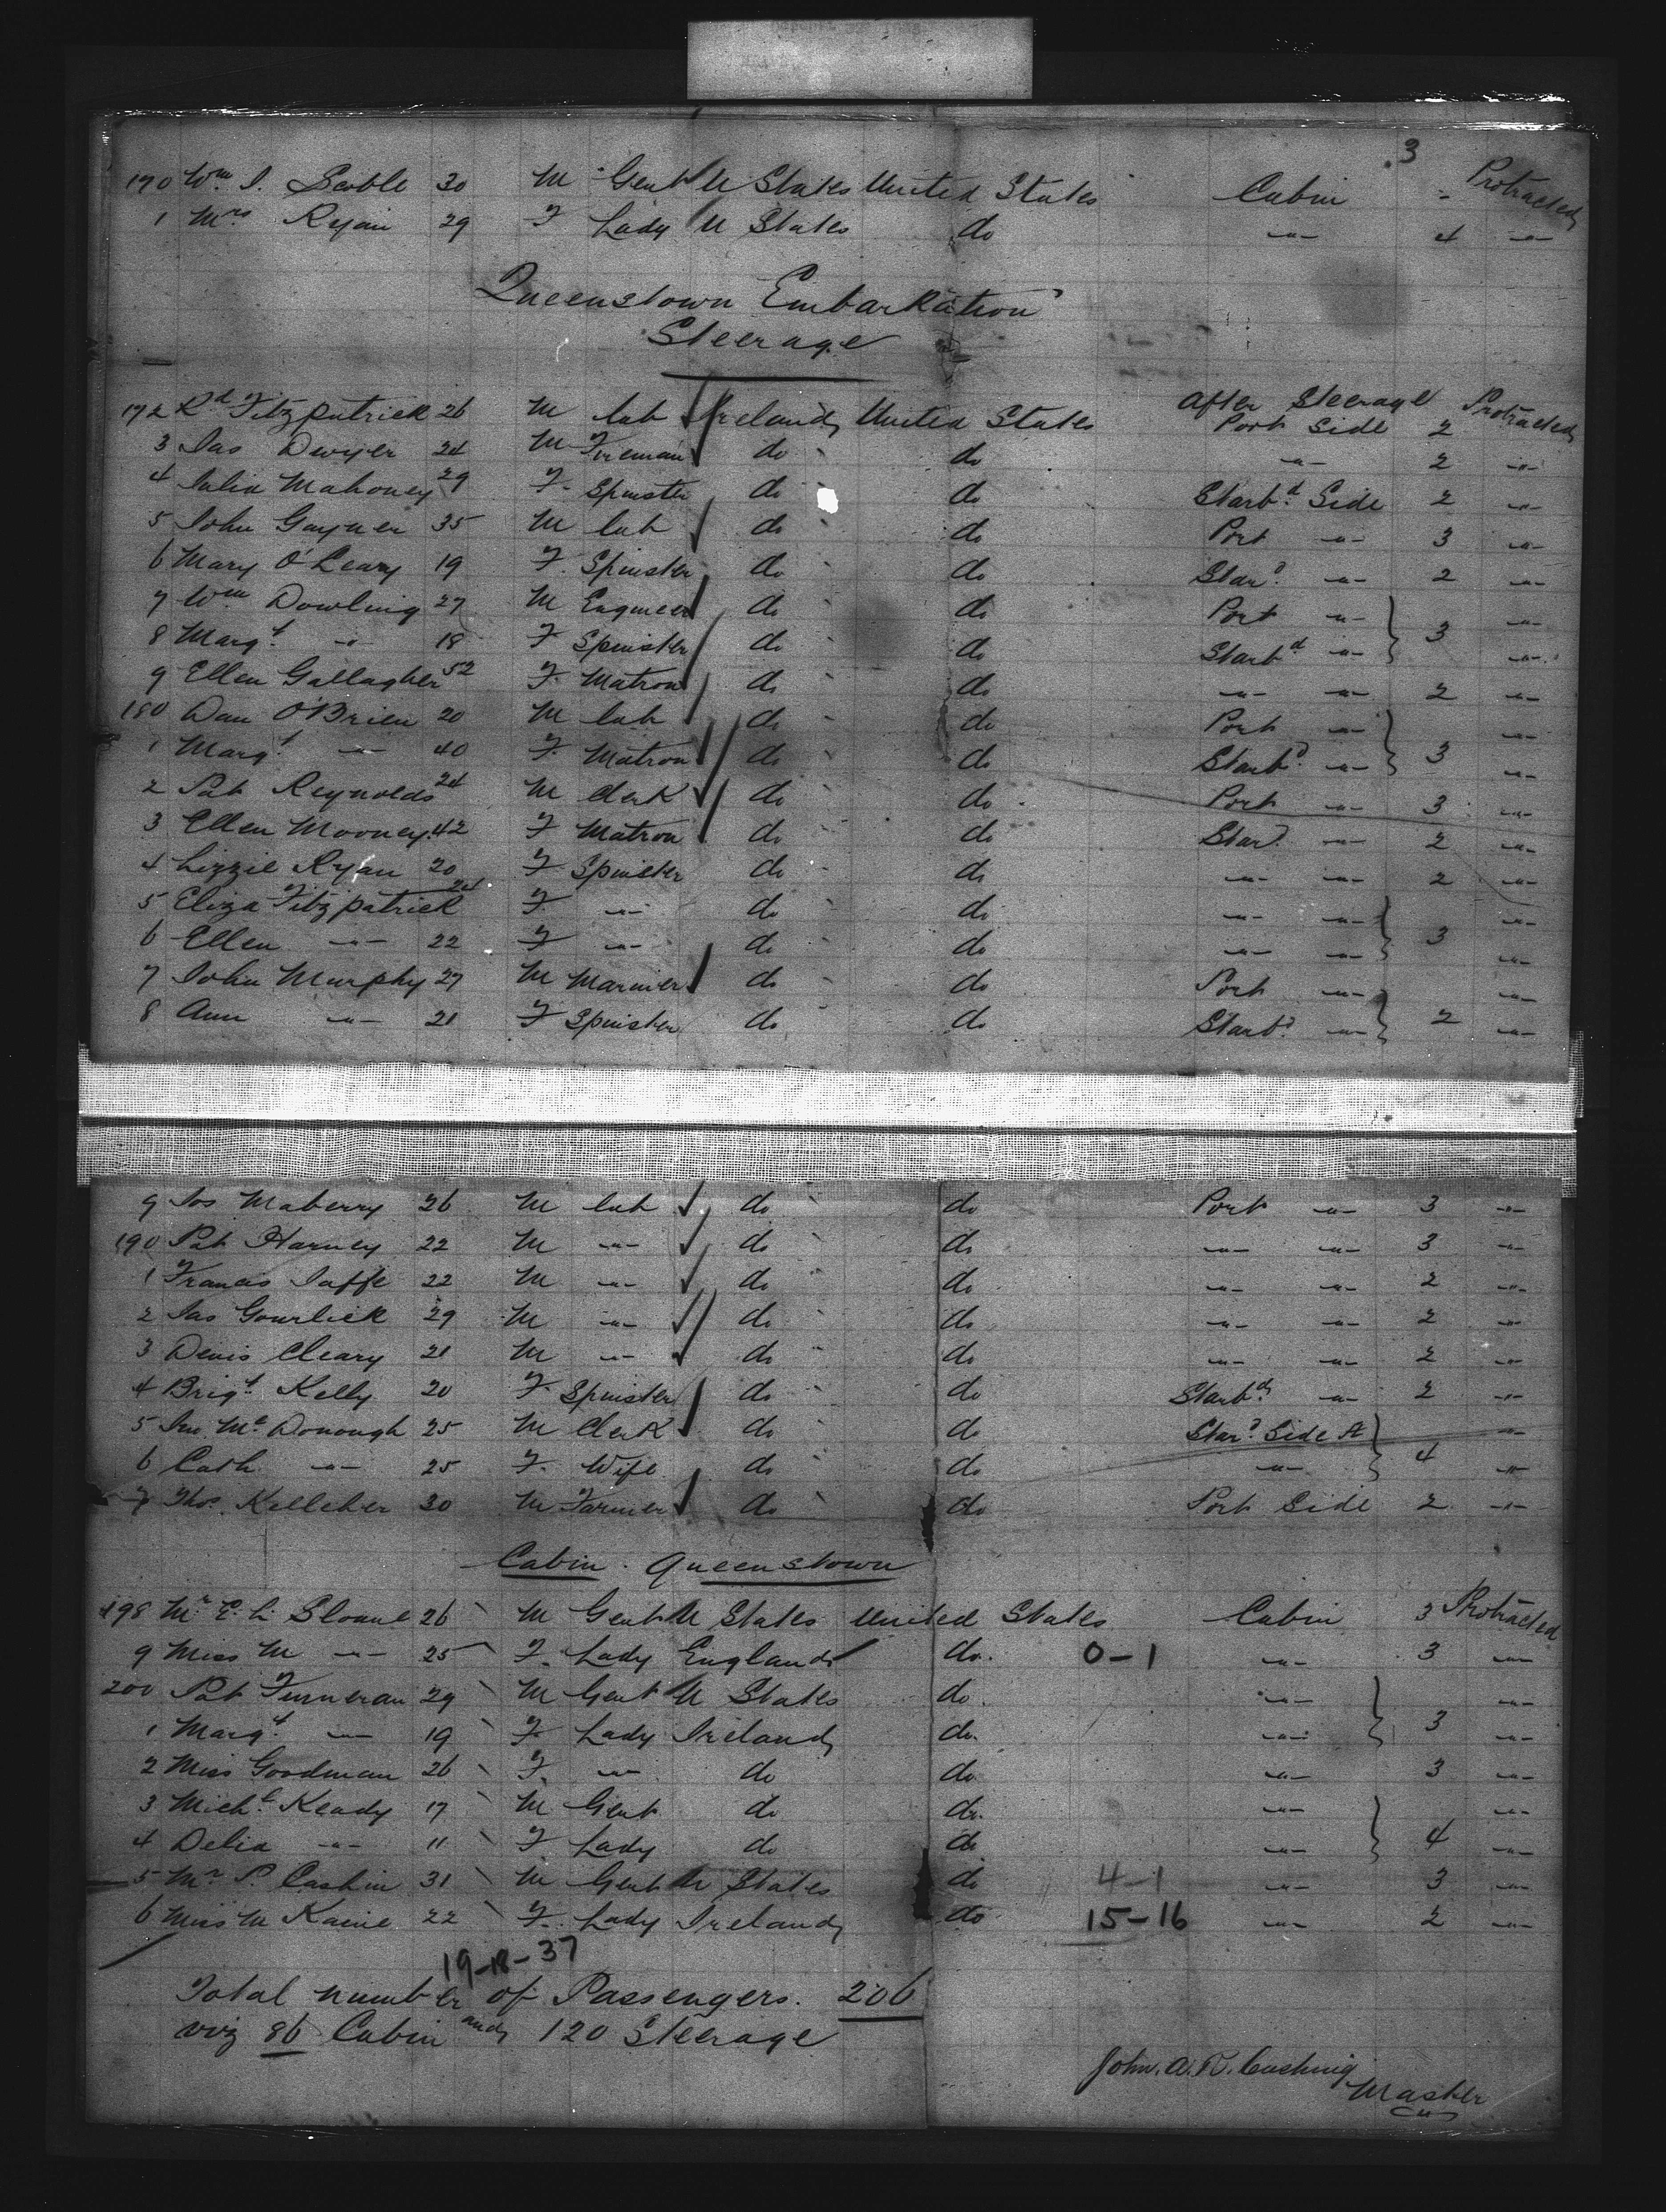 3
170 Wm J. Scoble 30 M Gent U States United States Cabin - Protracted
1 Mrs Ryan 29 F Lady U States do -"- 4 -"-
Queenstown Embarkation
Steerage
172 Rd Fitzpatrick 26 M lab Ireland United States After Steerage Port Side 2 Protracted
3 Jas Dwyer 24 M Fireman do do -"- 2 -"-
4 Julia Mahoney 29 F Spinster do do Starbd Side 2 -"-
5 John Gayner 35 M lab do do Port -"- 3 -"-
6 Mary O'Leary 19 F Spinster do do Stard -"- 2 -"-
7 Wm Dowling 27 M Engineer do do Port -"- -"-
8 Margt -"- 18 F Spinster do do Starbd -"- 3 -"-
9 Ellen Gallagher 52 F Matron do do -"- -"- 2 -"-
180 Dan O'Brien 20 M lab do do Port -"- -"-
1 Margt -"- 40 F Matron do do Starbd -"- 3 -"-
2 Pat Reynolds 24 M Clerk do do Port -"- 3 -"-
3 Ellen Mooney 42 F Matron do do Stard -"- 2 -"-
4 Lizzie Ryan 20 F Spinster do do -"- -"- 2 -"-
5 Eliza Fitzpatrick 24 F -"- do do -"- -"- -"-
6 Ellen -"- 22 F -"- do do -"- -"- 3 -"-
7 John Murphy 27 M Mariner do do Port -"- -"-
8 Ann -"- 21 F Spinster do do Starbd -"- 2 -"-
9 Jos Maberry 26 M lab do do Port -"- 3 -"-
190 Pat Harney 22 M -"- do do -"- -"- 3 -"-
1 Francis Jaffe 22 M -"- do do -"- -"- 2 -"-
2 Jas Gourlick 29 M -"- do do -"- -"- 2 -"-
3 Denis Cleary 21 M -"- do do -"- -"- 2 -"-
4 Brigt Kelly 20 F Spinster do do Starbd -"- 2 -"-
5 Jno. McDonough 25 M Clerk do do Stard Side A -"-
6 Cath -"- 25 F Wife do do -"- 4 -"-
7 Thos. Kelleher 30 M Farmer do do Port Side 2 -"-
Cabin. Queenstown
198 Mr. E. L. Sloane 26 M Gent U States United States Cabin 3 Protracted
9 Miss M -"- 25 F Lady England do. 0-1 -"- 3 -"-
200 Pat Finneran 29 M Gent U States do. -"- -"-
1 Margt -"- 19 F Lady Ireland do. -"- 3 -"-
2 Miss Goodman 26 F -"- do do. -"- 3 -"-
3 Michl Keady 17 M Gent do do. -"- -"-
4 Delia -"- 11 F Lady do do -"- 4 -"-
5 Mr P. Cashin 31 M Gent U States do 4-1 -"- 3 -"-
6 Miss M Kaine 22 F. Lady Ireland do 15-16 -"- 2 -"-
19-18-37
Total number of Passengers. 206
viz 86 Cabin and 120 Steerage
John. A. R. Cushing
Master